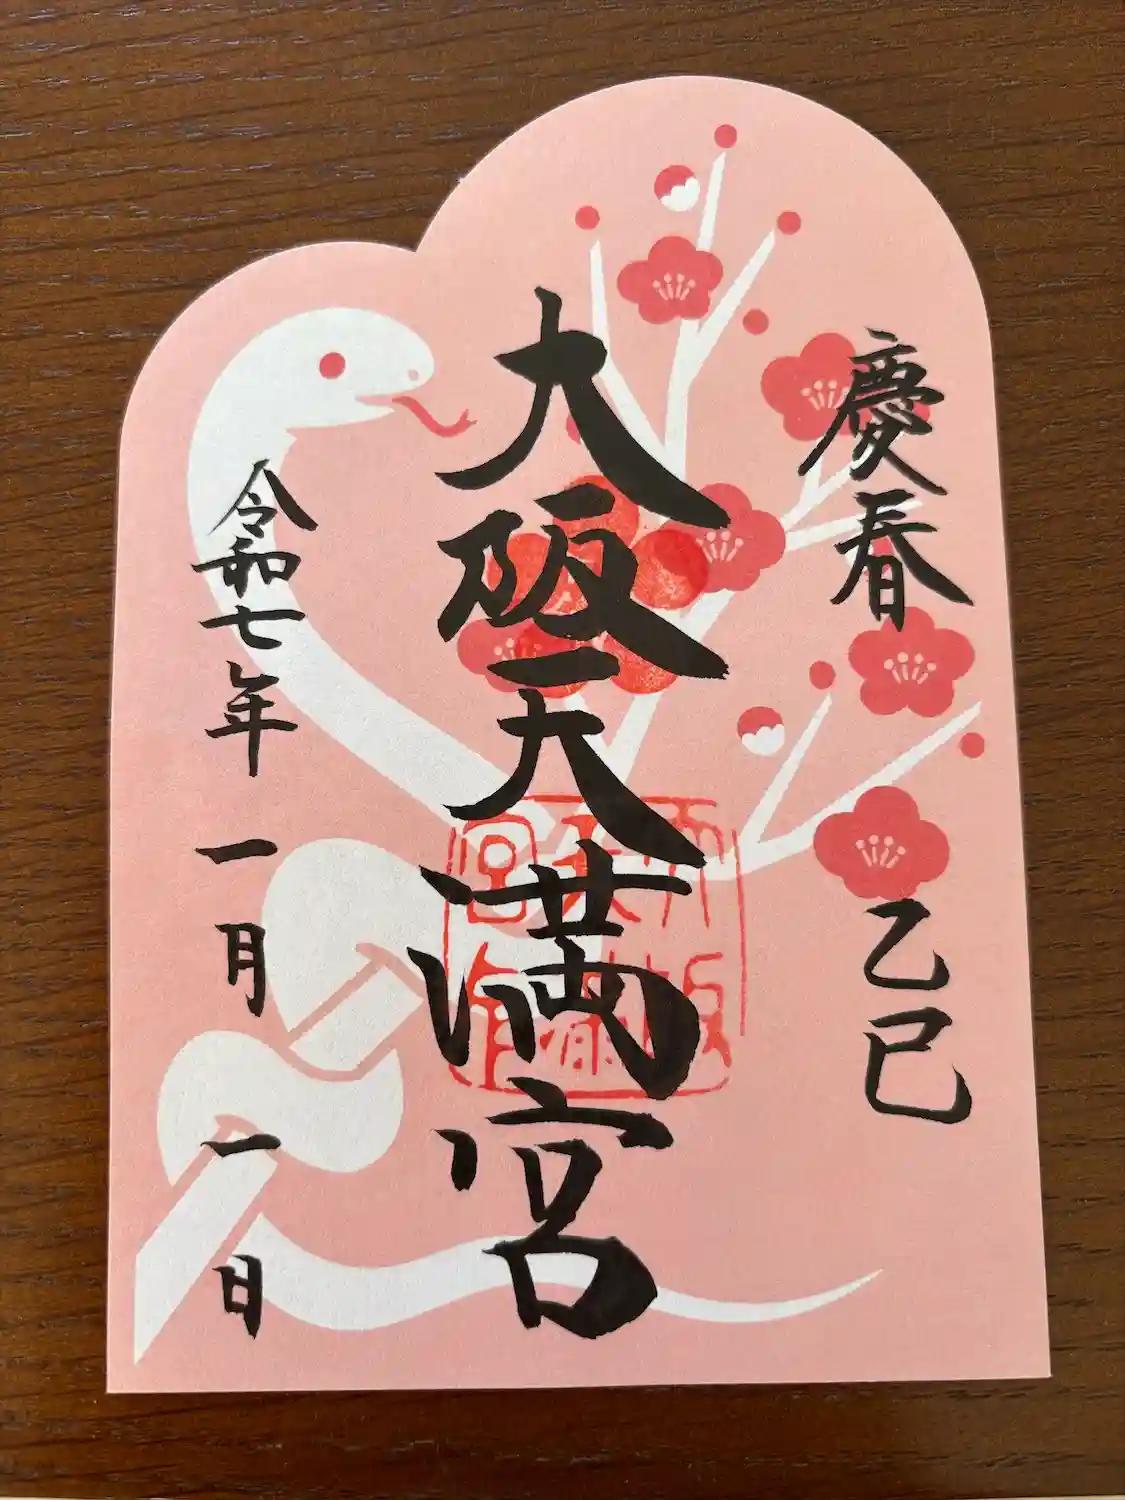 慶春
乙巳
大阪天満宮
令和七年一月一日